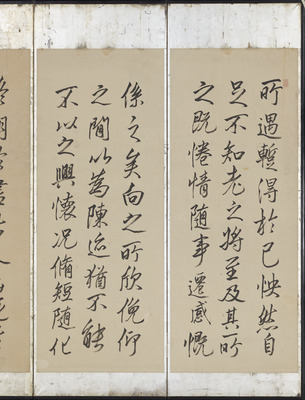 所遇蹔得於己怏然自
足不知老之將至及其所
之既惓情随事遷感慨
係之矣向之所欣俛仰
之閒以為陳迹猶不能
不以之興懷況脩短随化